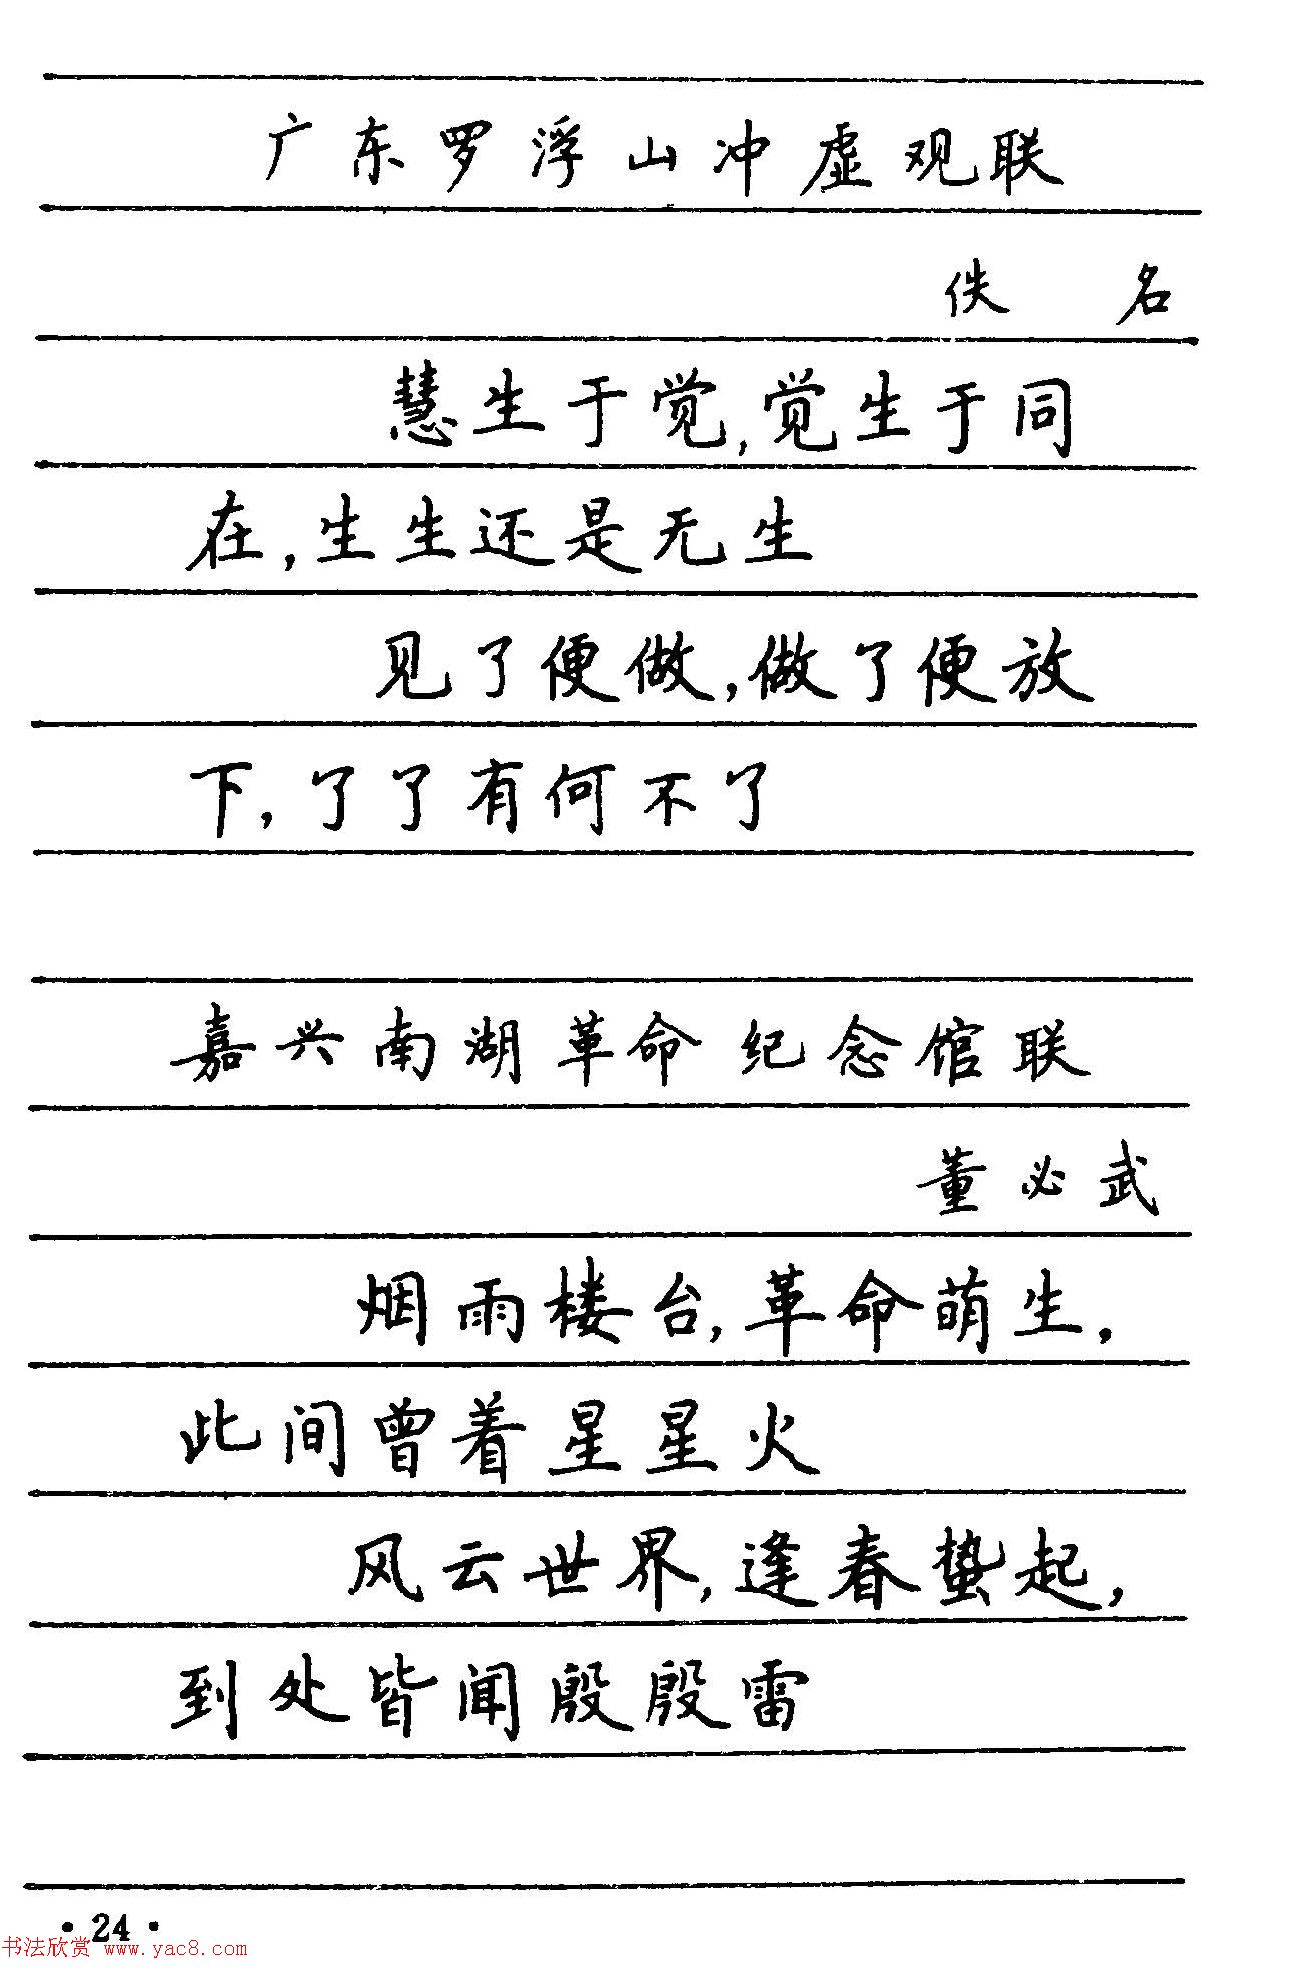 广东罗浮山冲虚观联
佚 名
慧生于觉,觉生于同
在,生生还是无生
见了便做,做了便放
下,了了有何不了
嘉兴南湖革命纪念馆联
董必武
烟雨楼台,革命萌生,
此间曾着星星火
风云世界,逢春蛰起,
到处皆闻殷殷雷
·24·
书法欣赏 www.yac8.com